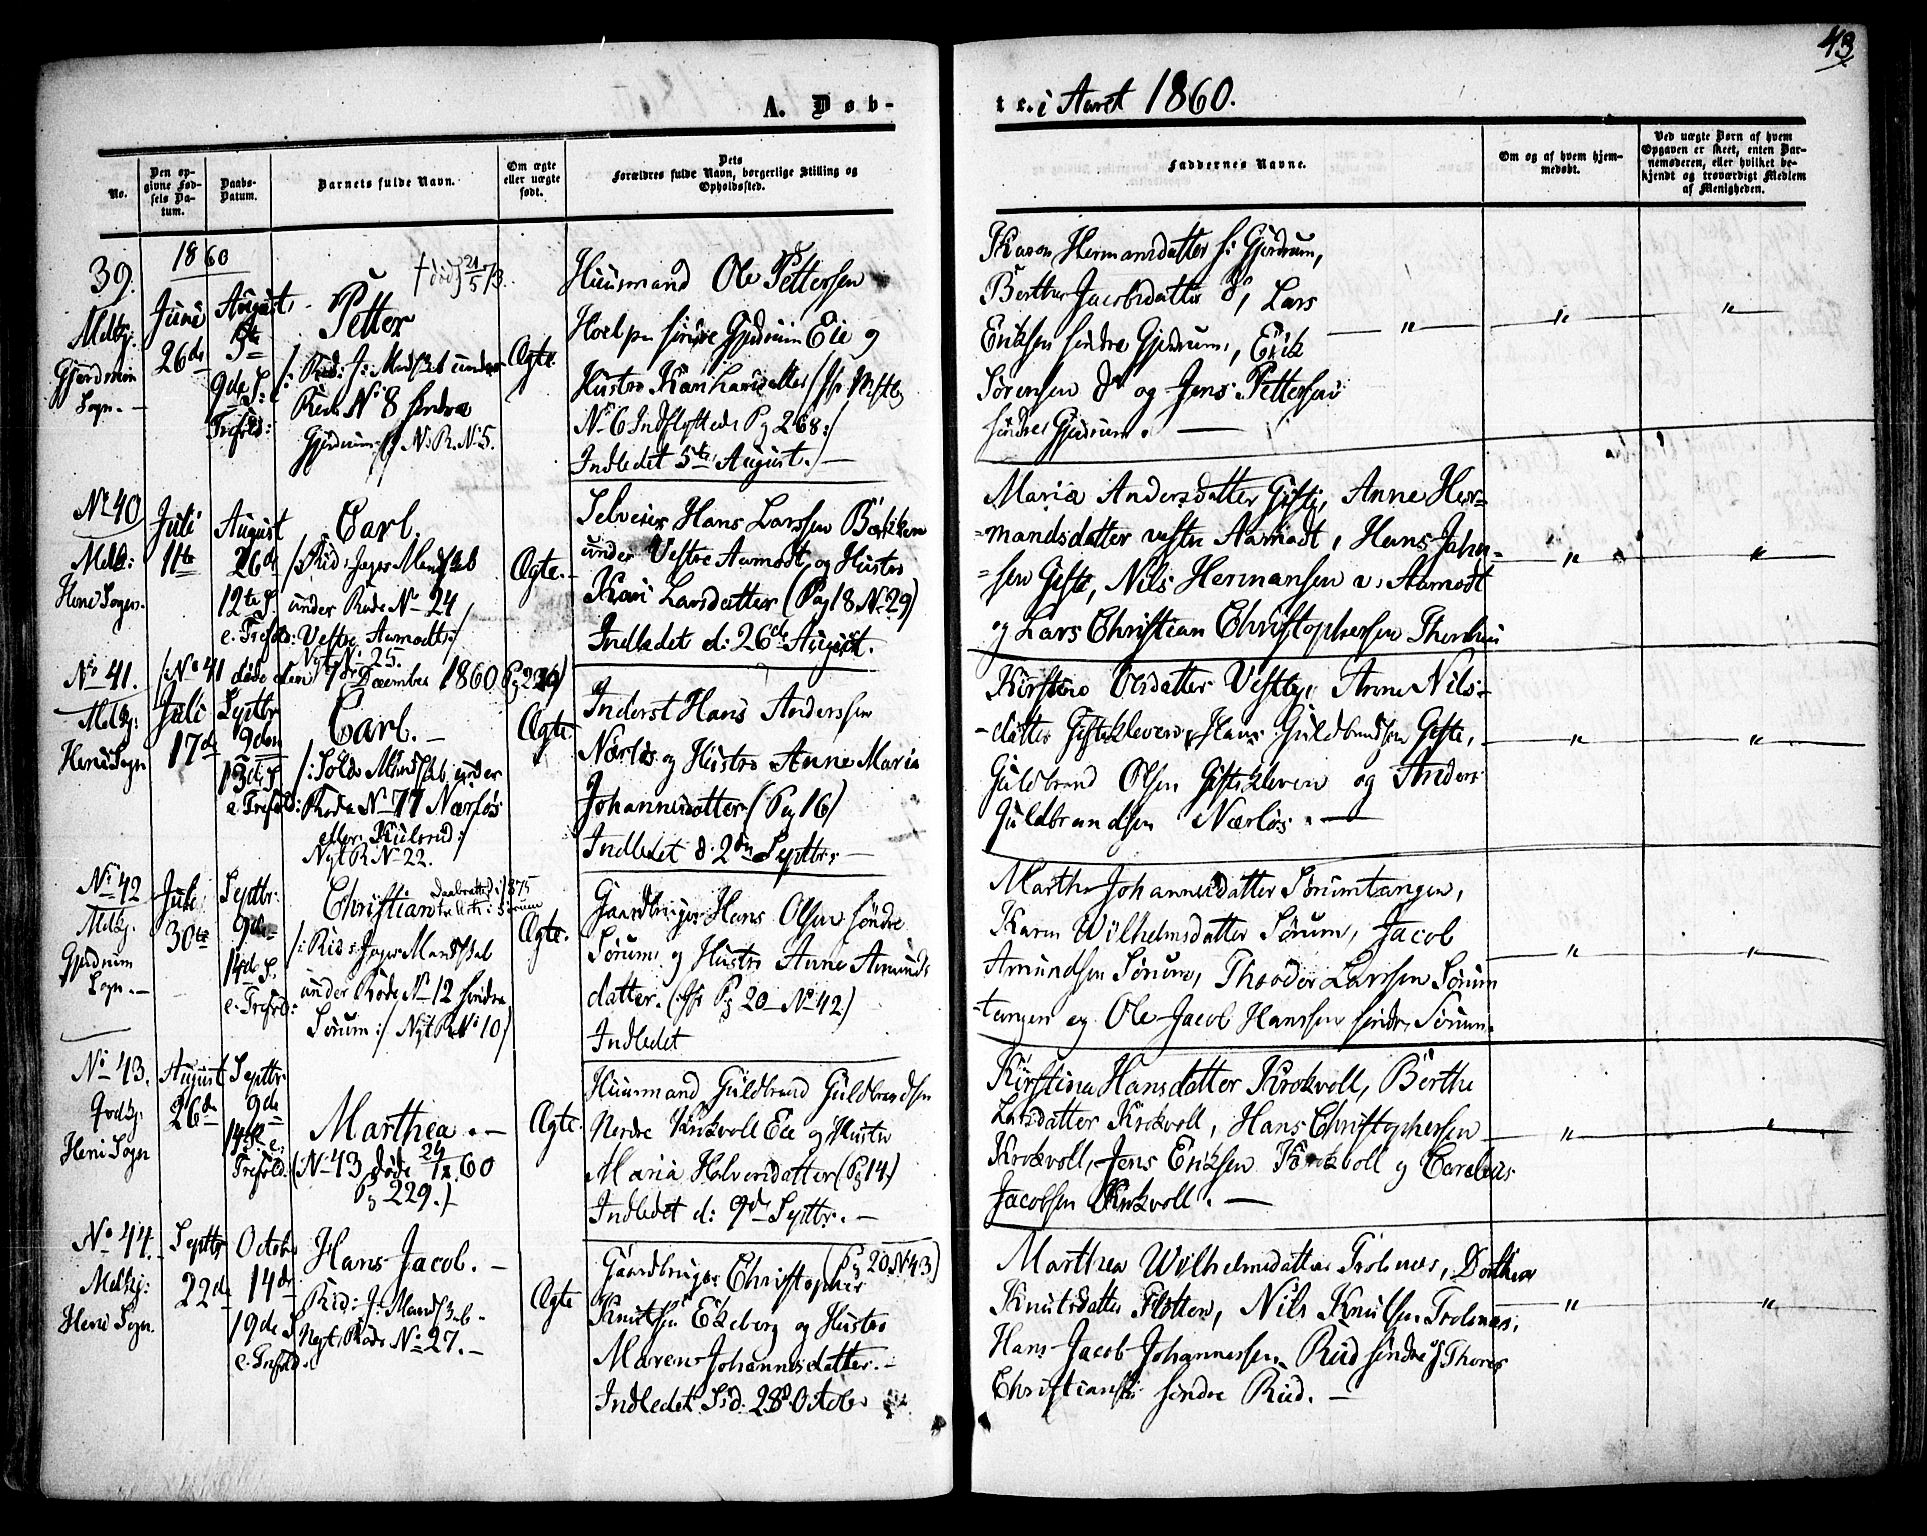 43
A. Døb-
te. i Aaret 1860.
No.
Den op-
givne Fød-
sels Da-
tum.
Daabs-
Datum.
Barnets fulde Navn.
Om ægte
eller uægte
født.
Dets
Forældres fulde Navn, borgerlige Stilling og
Opholdssted.
Faddernes Navne.
Om og af hvem hjem-
medøbt.
Ved uægte Børn af hvem
Opgaven er skeet, enten Bar-
nemoderen, eller hvilket be-
kjendt og troværdigt Medlem
af Menigheden.
1860
39.
Gjerdrum
Sogn.
Juni
26de
August
5te
9de S:
Trefold:
† død 21/5 73.
Petter
Rode N: 8 søndre
Gjerdrum N: R. N: 5.
Ægte.
Huusmand Ole Pettersen
søndre Gjerdrum Eie og
Hustro Kari Larsdatter
N: 6 Indflyttede Pg 268:/
Indledet 5te August./
Karen Hermansdatter s: Gjerdrum,
Berthe Jacobsdatter do, Lars
Eriksen søndre Gjerdrum, Erik
Sørensen do og Jens Pettersen
søndre Gjerdrum.
" " "
No 40
Heni Sogn.
Juli
11te
August
26de
12te S.
e. Trefold:
Carl
/: Rid: Jæger Mandskab
under Rode No 24
Vestre Aamodt:/
Nyt N: 25.
Ægte.
Selveier Hans Larssen Bakken
under Vestre Aamodt og Hustro
Kari Larsdatter (Pag 18 No 29)
Indledet d: 26de August.
Maria Andersdatter Gisti, Anne Her-
-mandsdatter vestre Aamodt, Hans Johan-
-sen Giste, Nils Hermansen v: Aamodt
og Lars Christian Christophersen
" "
No 41.
(No 41 døde den 1ste December 1860 Pg 230)
Heni Sogn
Juli
17de
Septbr
9den
13de S.
e Trefold:
Carl.
/: Sold: Mandskab under
Rode No 77 Nærløs
eller Kulsrud:/
Nyt R No 22.
Ægte
Inderst Hans Anderssen
Nærløs og Hustro Anne Maria
Johannesdatter (Pag 16)
Indledet d: 2den Septbr
Kirstine Olsdatter Vestby, Anne Nils-
-datter Gistekleven, Hans Guldbrandsen Giste,
Guldbrand Olsen Gistekleven og Anders
Guldbrandsen Nærløs.
" "
No 42
Gjerdrum
Sogn.
Juli
30te
Septbr:
9de
14de S.
e. Trefold:
Christian
Daabsattest i 1875
i Sørum
/: Rid: Jæger Mandskab
under Rode No 12 søndre
Sørum:/ Nyt R No 10)
Ægte.
Gaardbruger Hans Olsen søndre
Sørum og Hustro Anne Amunds
datter. (Pg 20 No 42)
Indledet
Marthe Johannesdatter Sørumtangen,
Karen Wilhelmsdatter Sørum, Jacob
Amundsen Sørum, Theodor Larssen Sørum
-tangen og Ole Jacob Hanssen søndre Sørum.
" "
No 43.
Heni Sogn
August
26de
Septbr.
9de
14de S. e.
Trefold.
Marthea.
(No 43 døde 24/12 60
Pg 229.)
Ægte.
Huusmand Guldbrand Guldbrandsen
Nordre Krokvoll Eie og Hustro
Maria Halvorsdatter (Pg 14)
Indledet d: 9de Septbr.
Kirstina Hansdatter Krokvoll, Berthe
Larsdatter Krokvoll, Hans Christophersen
Krokvoll, Jens Eriksen Krokvoll og Carelius
Jacobsen Krokvoll.
" "
No 44.
Heni Sogn.
Septbr
22de
Octobr
14de
19de S
e. Trefold.
Hans Jacob.
Rid: J: Mandskab
Nyt Rode No 27.
Ægte
(Pg 20 No 43)
Gaardbruger Christopher
Knutsen Ekeberg og Hustro
Maren Johannesdatter.
Indledet d. 28de October
Marthea Wilhelmsdatter Trolsnes, Dorthea
Knutsdatter Flotten, Nils Knutsen Trolsnes,
Hans Jacob Johannessen Rud søndre og Thores
Christiansen søndre Rud.
" "